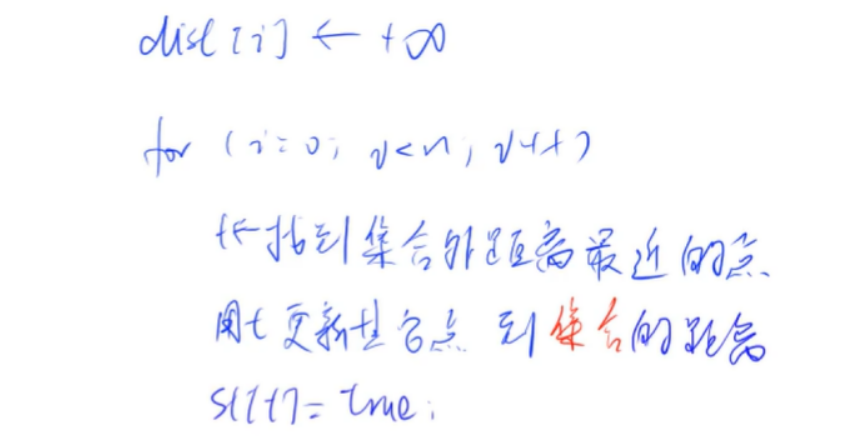 dist[i] ← +∞
for (i=0; i<n; i++)
t←找到集合外距离最近的点
用t更新其它点 到集合的距离
st[t] = true;